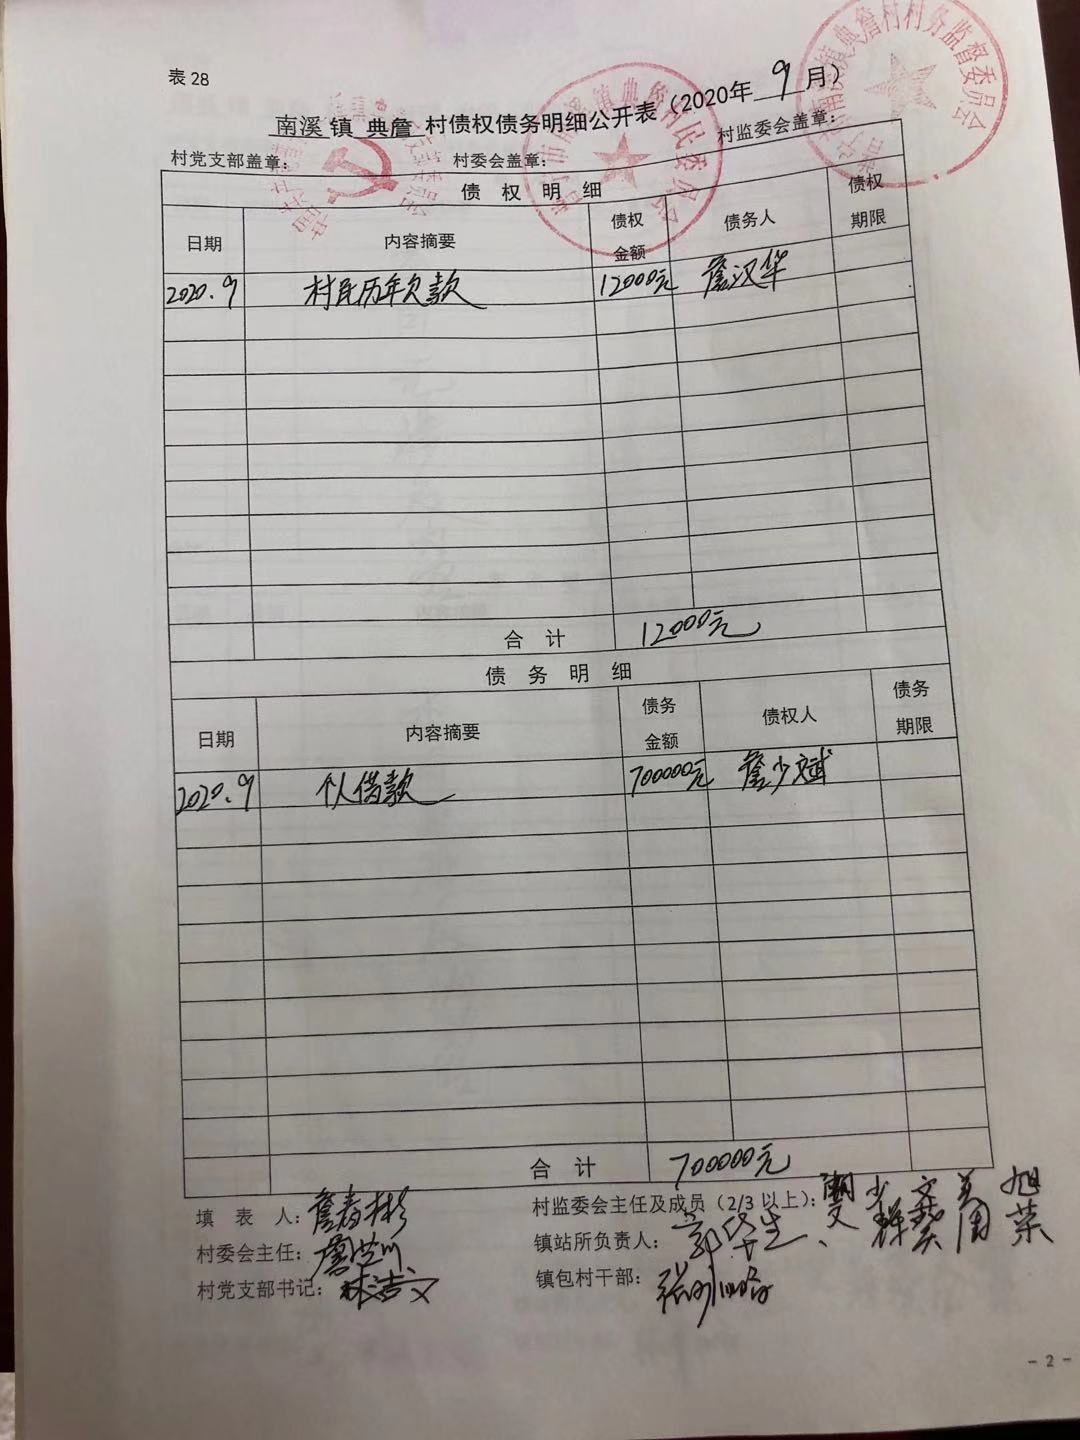 表 28
南溪 镇 典詹 村债权债务明细公开表（2020年 9 月）
村党支部盖章： 村委会盖章： 村监委会盖章：
债 权 明 细
日期 内容摘要 债权金额 债务人 债权期限
2020.9 村民历年欠款 12000元 詹汉华
合 计 12000元
债 务 明 细
日期 内容摘要 债务金额 债权人 债务期限
2020.9 个人借款 700000元 詹少斌
合 计 700000元
填 表 人： 村监委会主任及成员（2/3 以上）：
村委会主任： 镇站所负责人：
村党支部书记： 林洁文 镇包村干部：
- 2 -